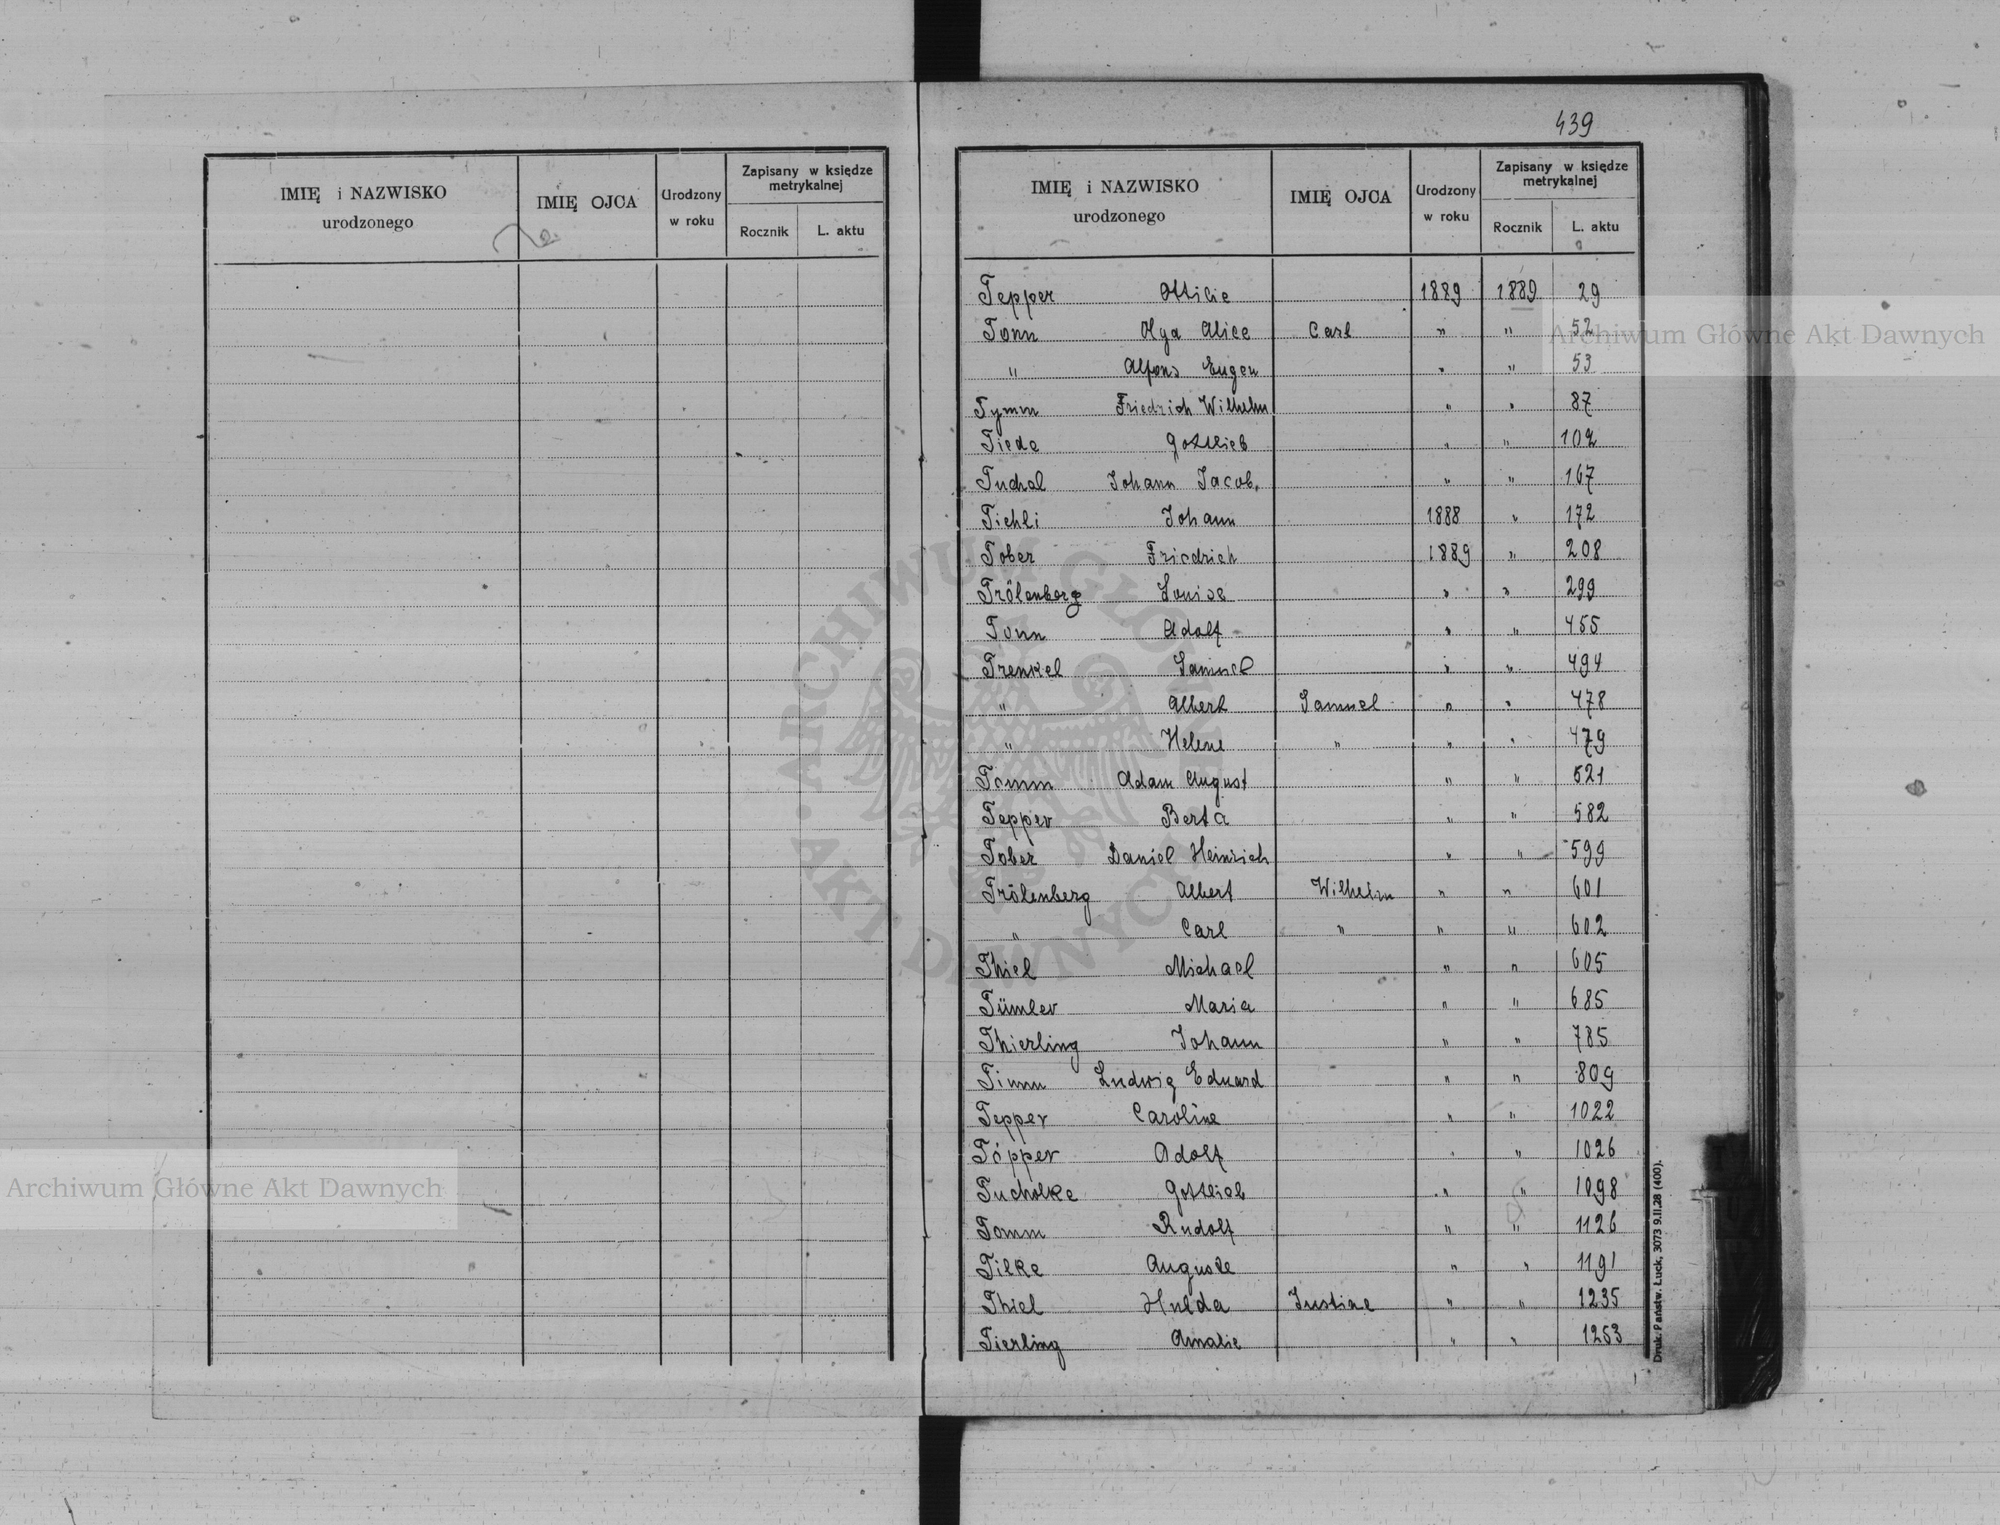 439
IMIĘ i NAZWISKO urodzonego IMIĘ OJCA Urodzony w roku Zapisany w księdze metrykalnej Rocznik L. aktu
IMIĘ i NAZWISKO urodzonego IMIĘ OJCA Urodzony w roku Zapisany w księdze metrykalnej Rocznik L. aktu
Tepper Ottilie 1889 1889 29
Tonn Olga Alice Carl " " 52
" Alfons Eugen " " 53
Tymm Friedrich Wilhelm " " 87
Tiede Gottlieb " " 102
Tuchal Johann Jacob. " " 167
Tichli Johann 1888 " 172
Tober Friedrich 1889 " 208
Trölenberg Louise " " 299
Tonn Adolf " " 455
Trenkel Samuel " " 494
" Albert Samuel " " 478
" Helene " " " 479
Tomm Adam August " " 521
Tepper Berta " " 582
Tober Daniel Heinrich " " 599
Trölenberg Albert Wilhelm " " 601
" Carl " " " 602
Thiel Michael " " 605
Tümler Maria " " 685
Thierling Johann " " 785
Timm Ludwig Eduard " " 809
Tepper Caroline " " 1022
Töpper Adolf " " 1026
Tucholke Gottlieb " " 1098
Tomm Rudolf " " 1126
Tilke Auguste " " 1191
Thiel Hulda Justine " " 1235
Tierling Amalie " " 1253
Druk. Państw. Łuck, 3073 9.II.28 (400).
Archiwum Główne Akt Dawnych
Archiwum Główne Akt Dawnych
ARCHIWUM GŁÓWNE AKT DAWNYCH